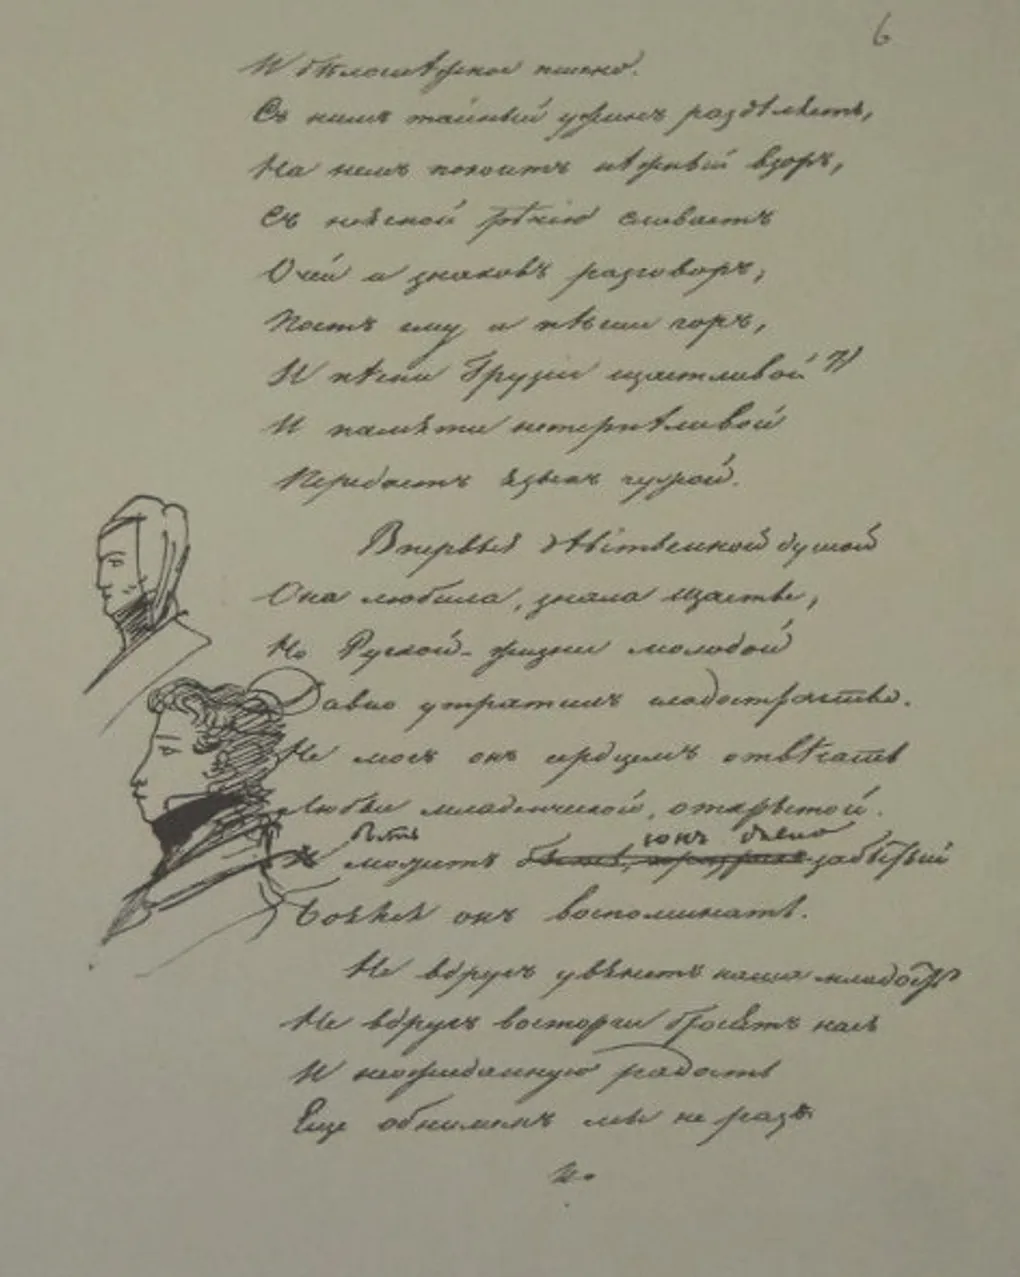 6
И бѣлоснѣжное пшено.
Съ нимъ тайный ужинъ раздѣляетъ,
На немъ покоитъ нѣжный взоръ,
Съ неясной рѣчію сливаетъ
Очей и знаковъ разговоръ,
Поетъ ему и пѣсни горъ,
И пѣсни Грузіи щастливой 7)
И памяти нетерпѣливой
Передаетъ языкъ чужой.
Впервые дѣвственной душой
Она любила, знала щастье,
Но Руской жизни молодой
Давно утратилъ сладострастье.
Не могъ онъ сердцемъ отвѣчать
Любви младенческой, открытой.
быть сонъ давно
можетъ быть, забытый
Боялся онъ воспоминать.
Не вдругъ увянетъ наша младость
Не вдругъ восторги бросятъ насъ
И неожиданную радость
Еще обнимемъ мы не разъ